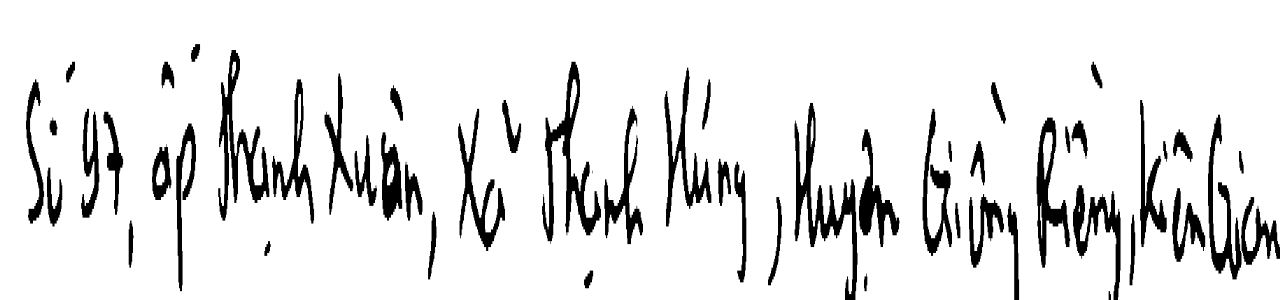 Số 97, ấp Thạnh Xuân, Xã Thạnh Hưng, Huyện Giồng Riềng, Kiên Gian